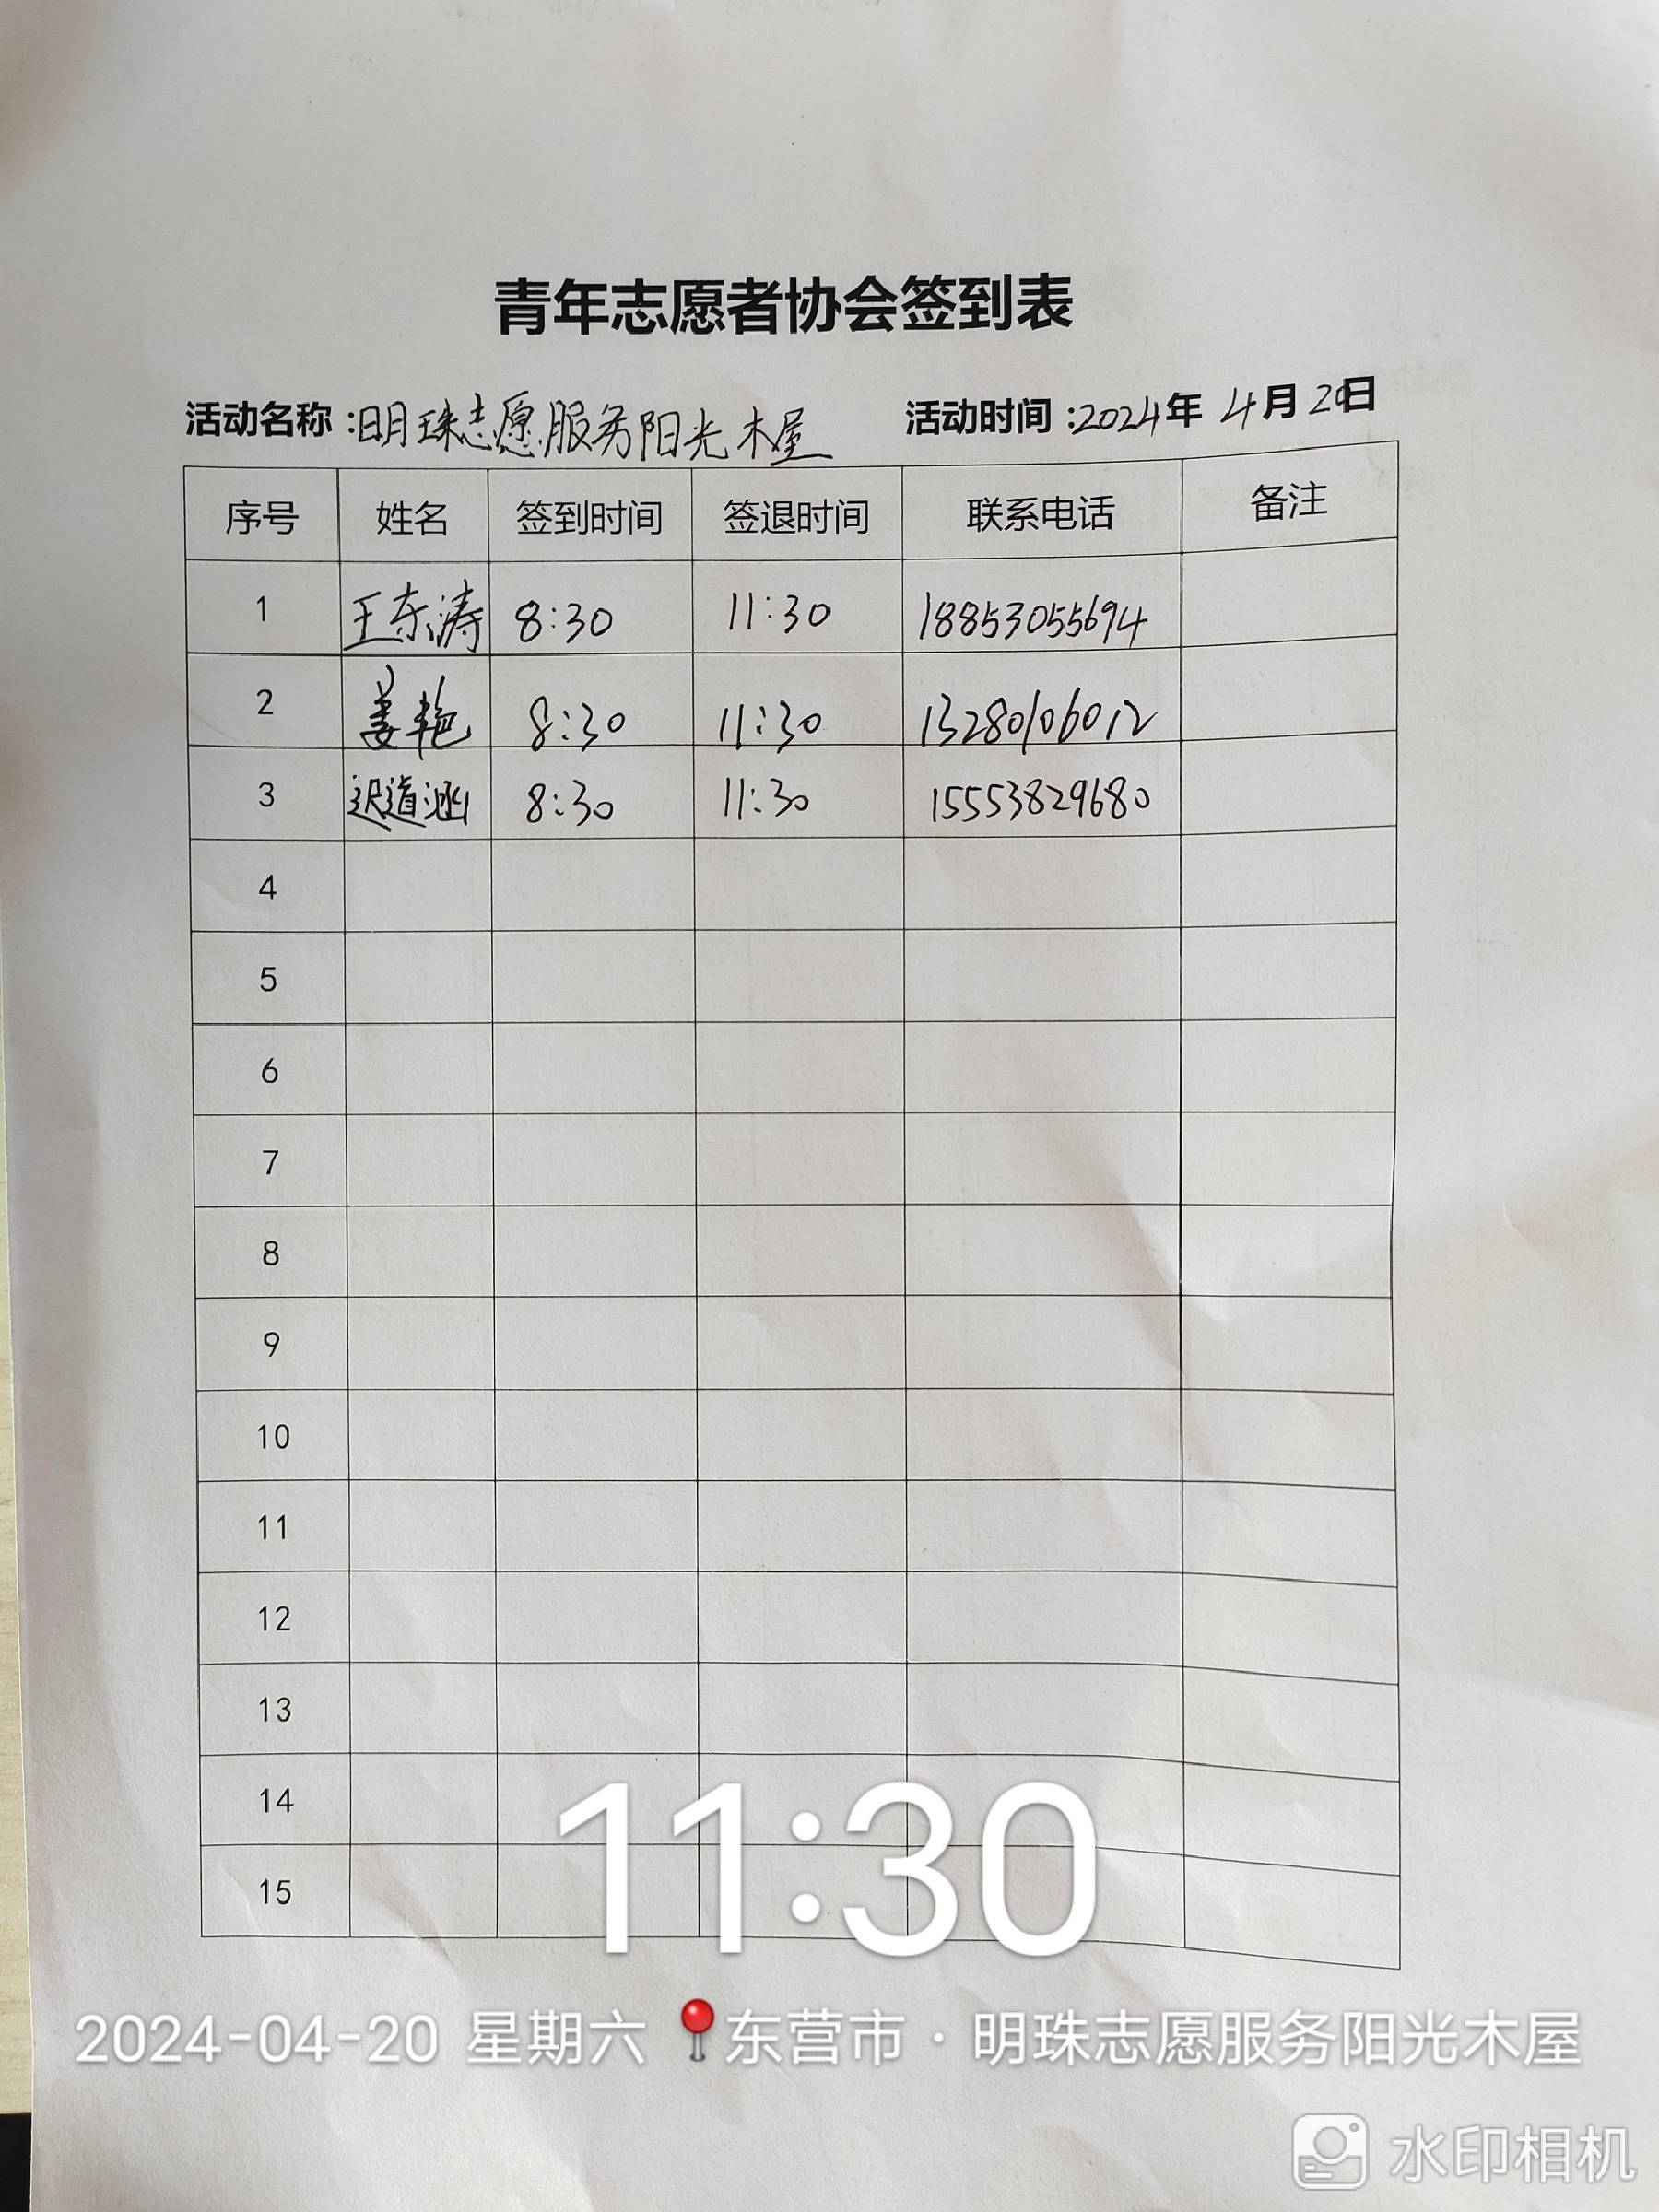 青年志愿者协会签到表
活动名称:明珠志愿服务阳光木屋 活动时间:2024年 4月20日
序号 姓名 签到时间 签退时间 联系电话 备注
1 王东涛 8:30 11:30 18853055694
2 姜艳 8:30 11:30 13280106012
3 迟道涵 8:30 11:30 15553829680
4
5
6
7
8
9
10
11
12
13
14
15
11:30
2024-04-20 星期六 东营市·明珠志愿服务阳光木屋
水印相机